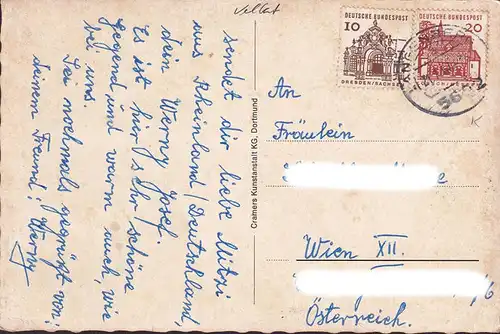 Vellat
sendet dir liebe Mitzi
aus Rheinland/Deutschland,
dein Werny Josef.
Es ist hier sehr schöne
Gegend und warm auch, wie
bei uns.
Sei nochmals gegrüßt von:
deinem Freund: Werny
Cramers Kunstanstalt KG, Dortmund
DEUTSCHE BUNDESPOST
10
DRESDEN/SACHSEN
DEUTSCHE BUNDESPOST
20
An
Fräulein
Wien XII.
Österreich.